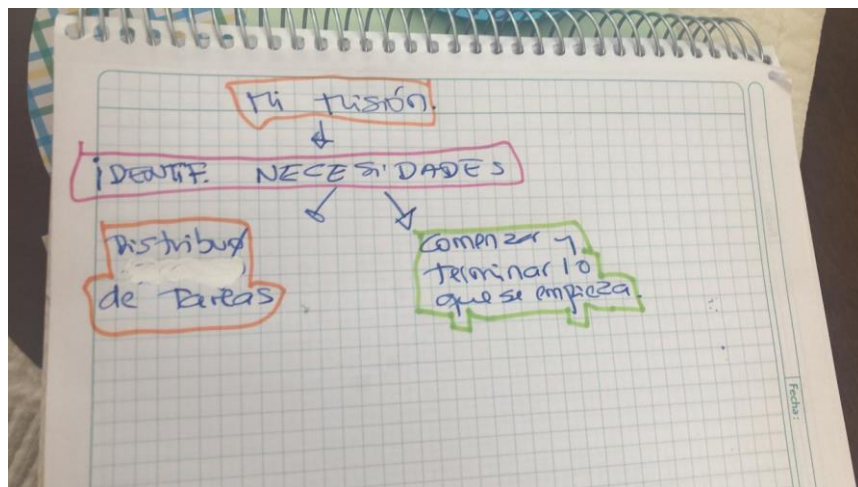 Mi Misión.
IDENTIF. NECESIDADES
Distribuø
de Tareas
Comenzar y
terminar lo
que se empieza.
Fecha: